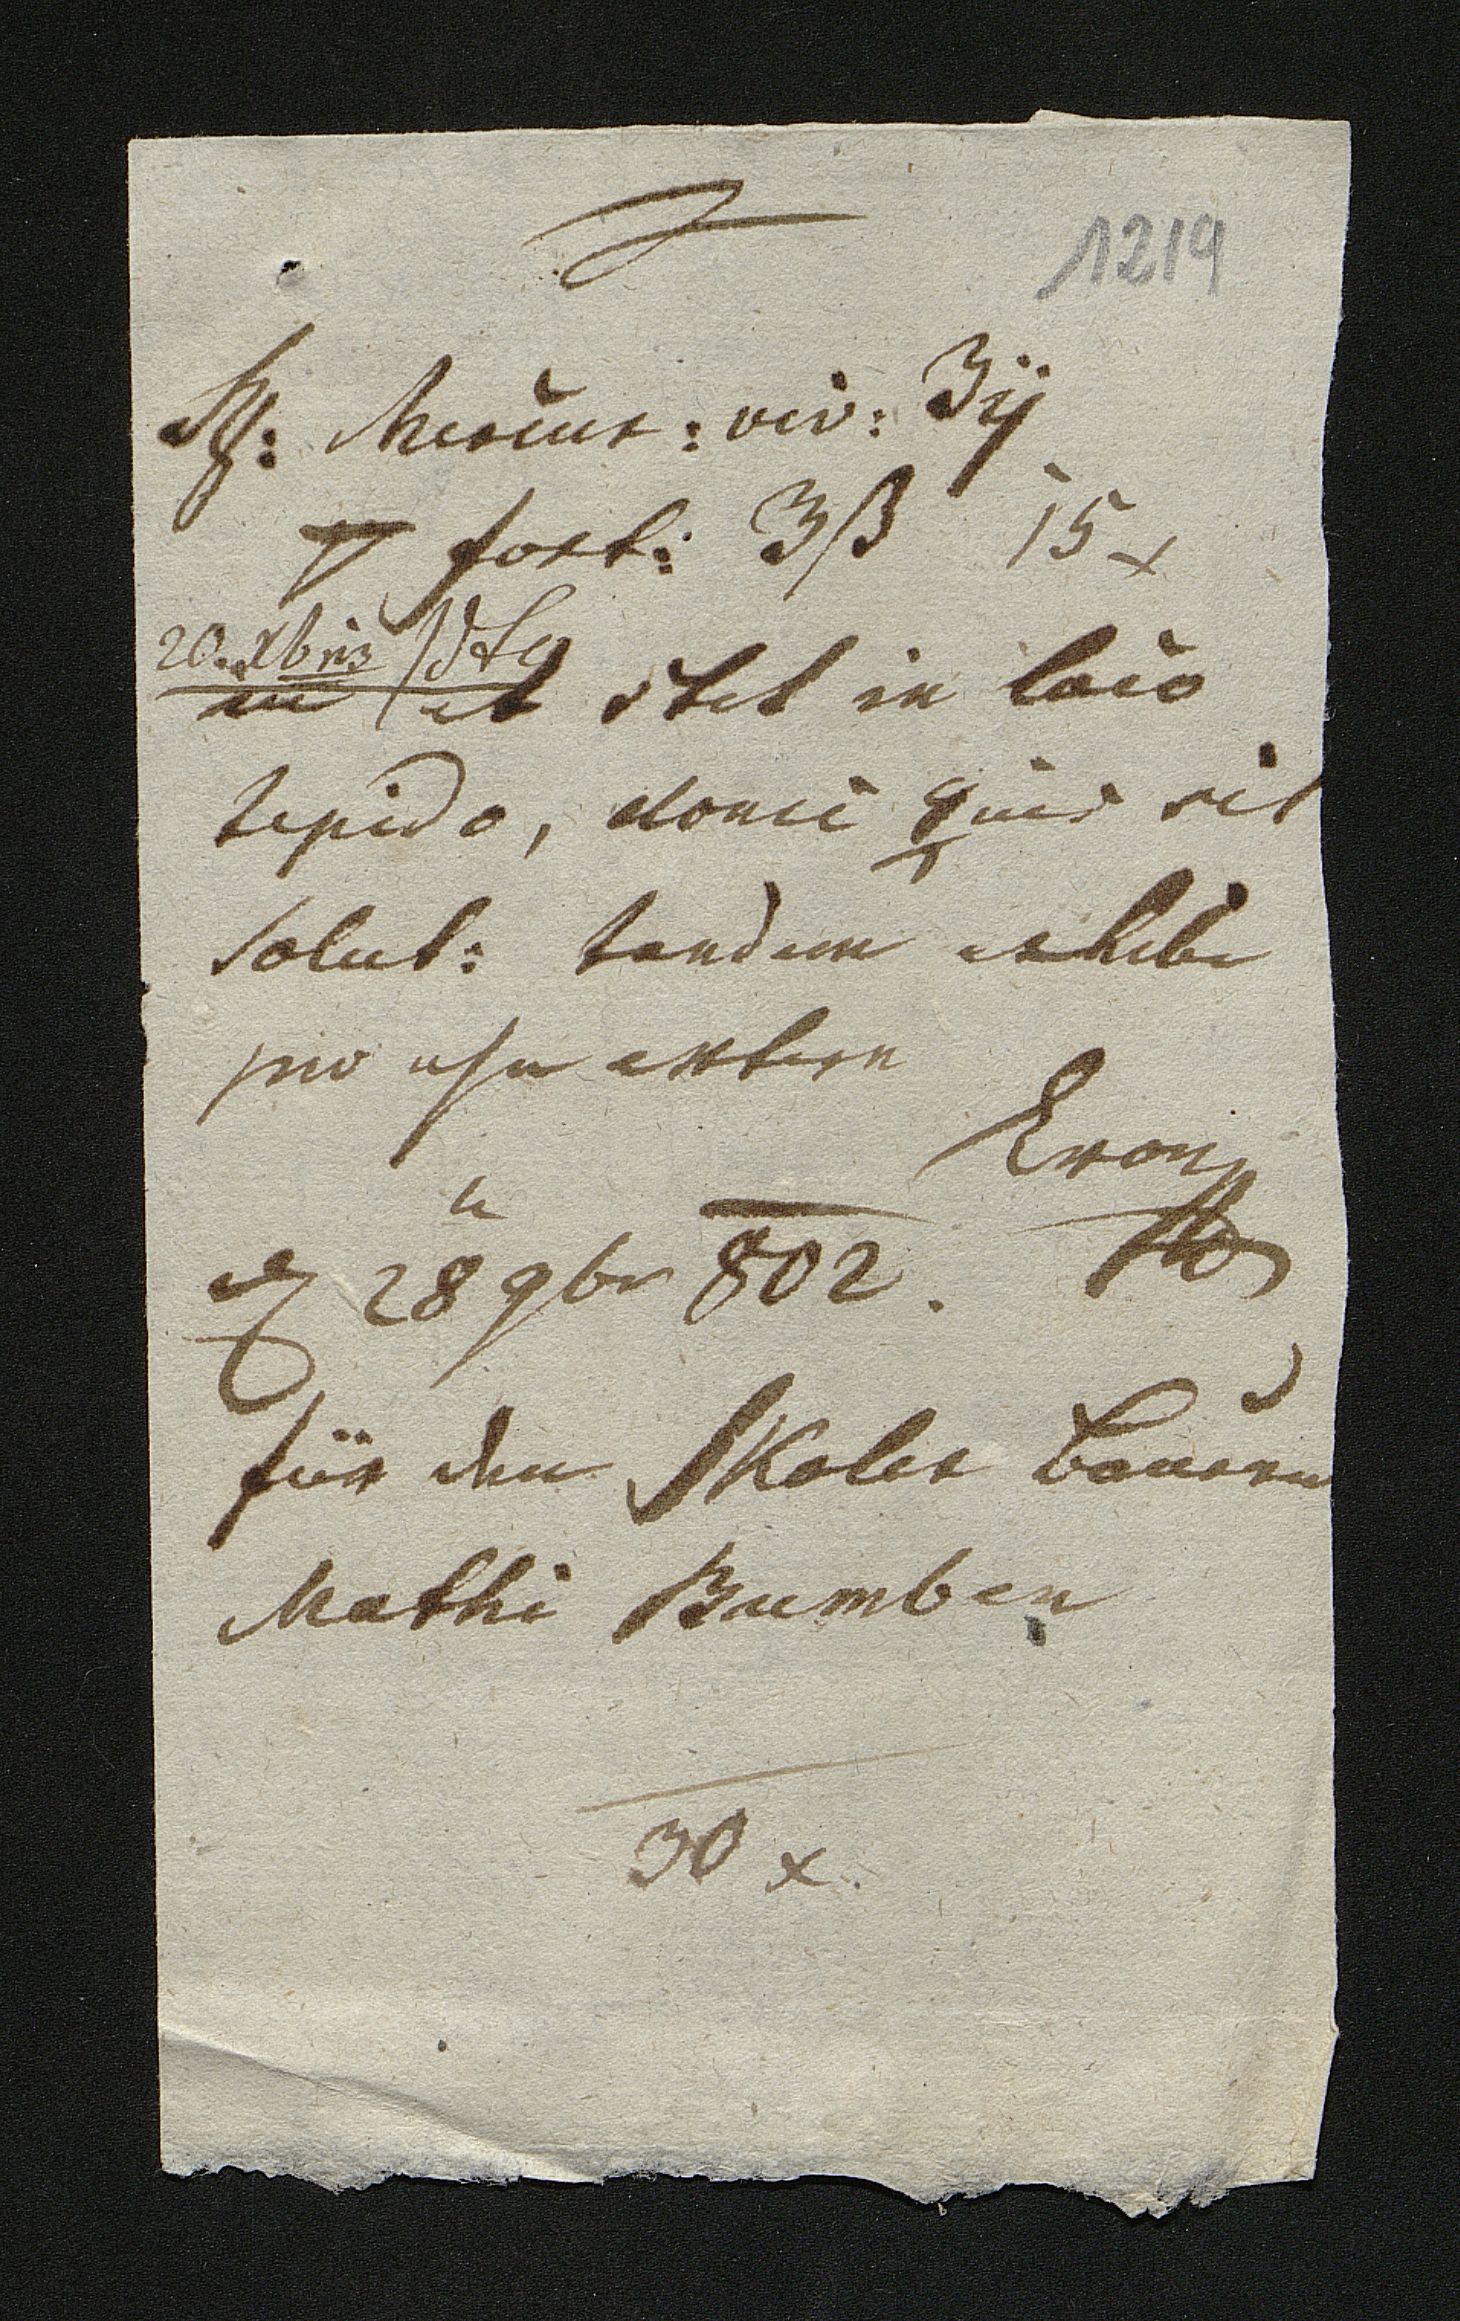 1219
℞: Mercur: viv: ʒij
fort: ʒβ 15 x
20. Xbris
m et stet in loco
tepido, donec ☿ius sit
solut: tandem exhibe
pro usu extern
28 9br 802.
für den Skoler bauern
Mathi Bumben
30 x.